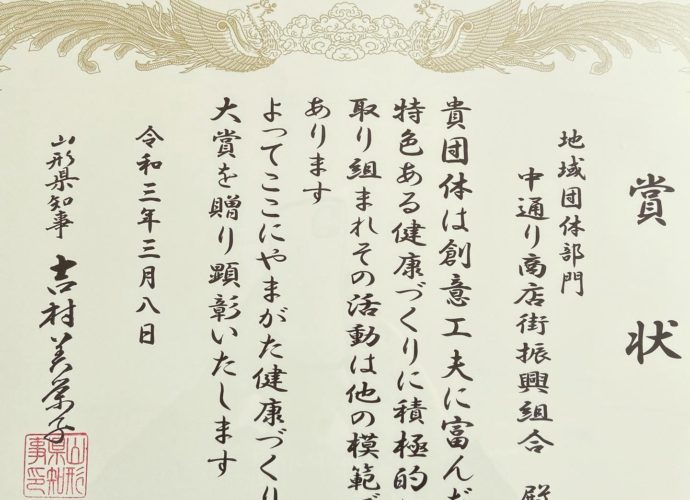 賞状
地域団体部門
中通り商店街振興組合 殿
貴団体は創意工夫に富んだ
特色ある健康づくりに積極的
取り組まれその活動は他の模範
あります
よってここにやまがた健康づくり
大賞を贈り顕彰いたします
令和三年三月八日
山形県知事 吉村美栄子
山形県知事印